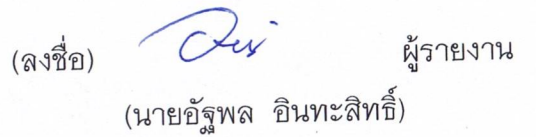 (ลงชื่อ) ผู้รายงาน
(นายอัฐพล อินทะสิทธิ์)